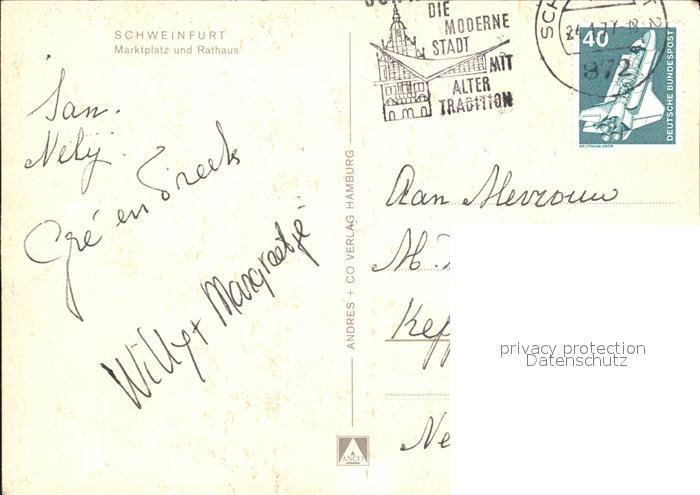 SCHWEINFURT
Marktplatz und Rathaus
Jan.
Nelij.
Gré en Freek
Willy + Margreetje
ANDRES + CO VERLAG HAMBURG
ANCO
DIE
MODERNE
STADT
MIT
ALTER
TRADITION
872
40
DEUTSCHE BUNDESPOST
WELTRAUMLABOR
Aan Mevrouw
M.
Kep
Ne
privacy protection
Datenschutz